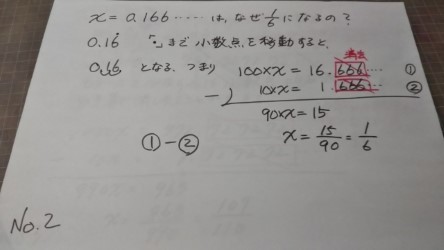 x = 0.166…… は、なぜ 1/6 になるの?
0.16̇ 「・」まで小数点を移動すると、
0.166 となる。つまり 100×x = 16.666… ①
−) 10×x = 1.666… ②
90×x = 15
①−② x = 15/90 = 1/6
No.2